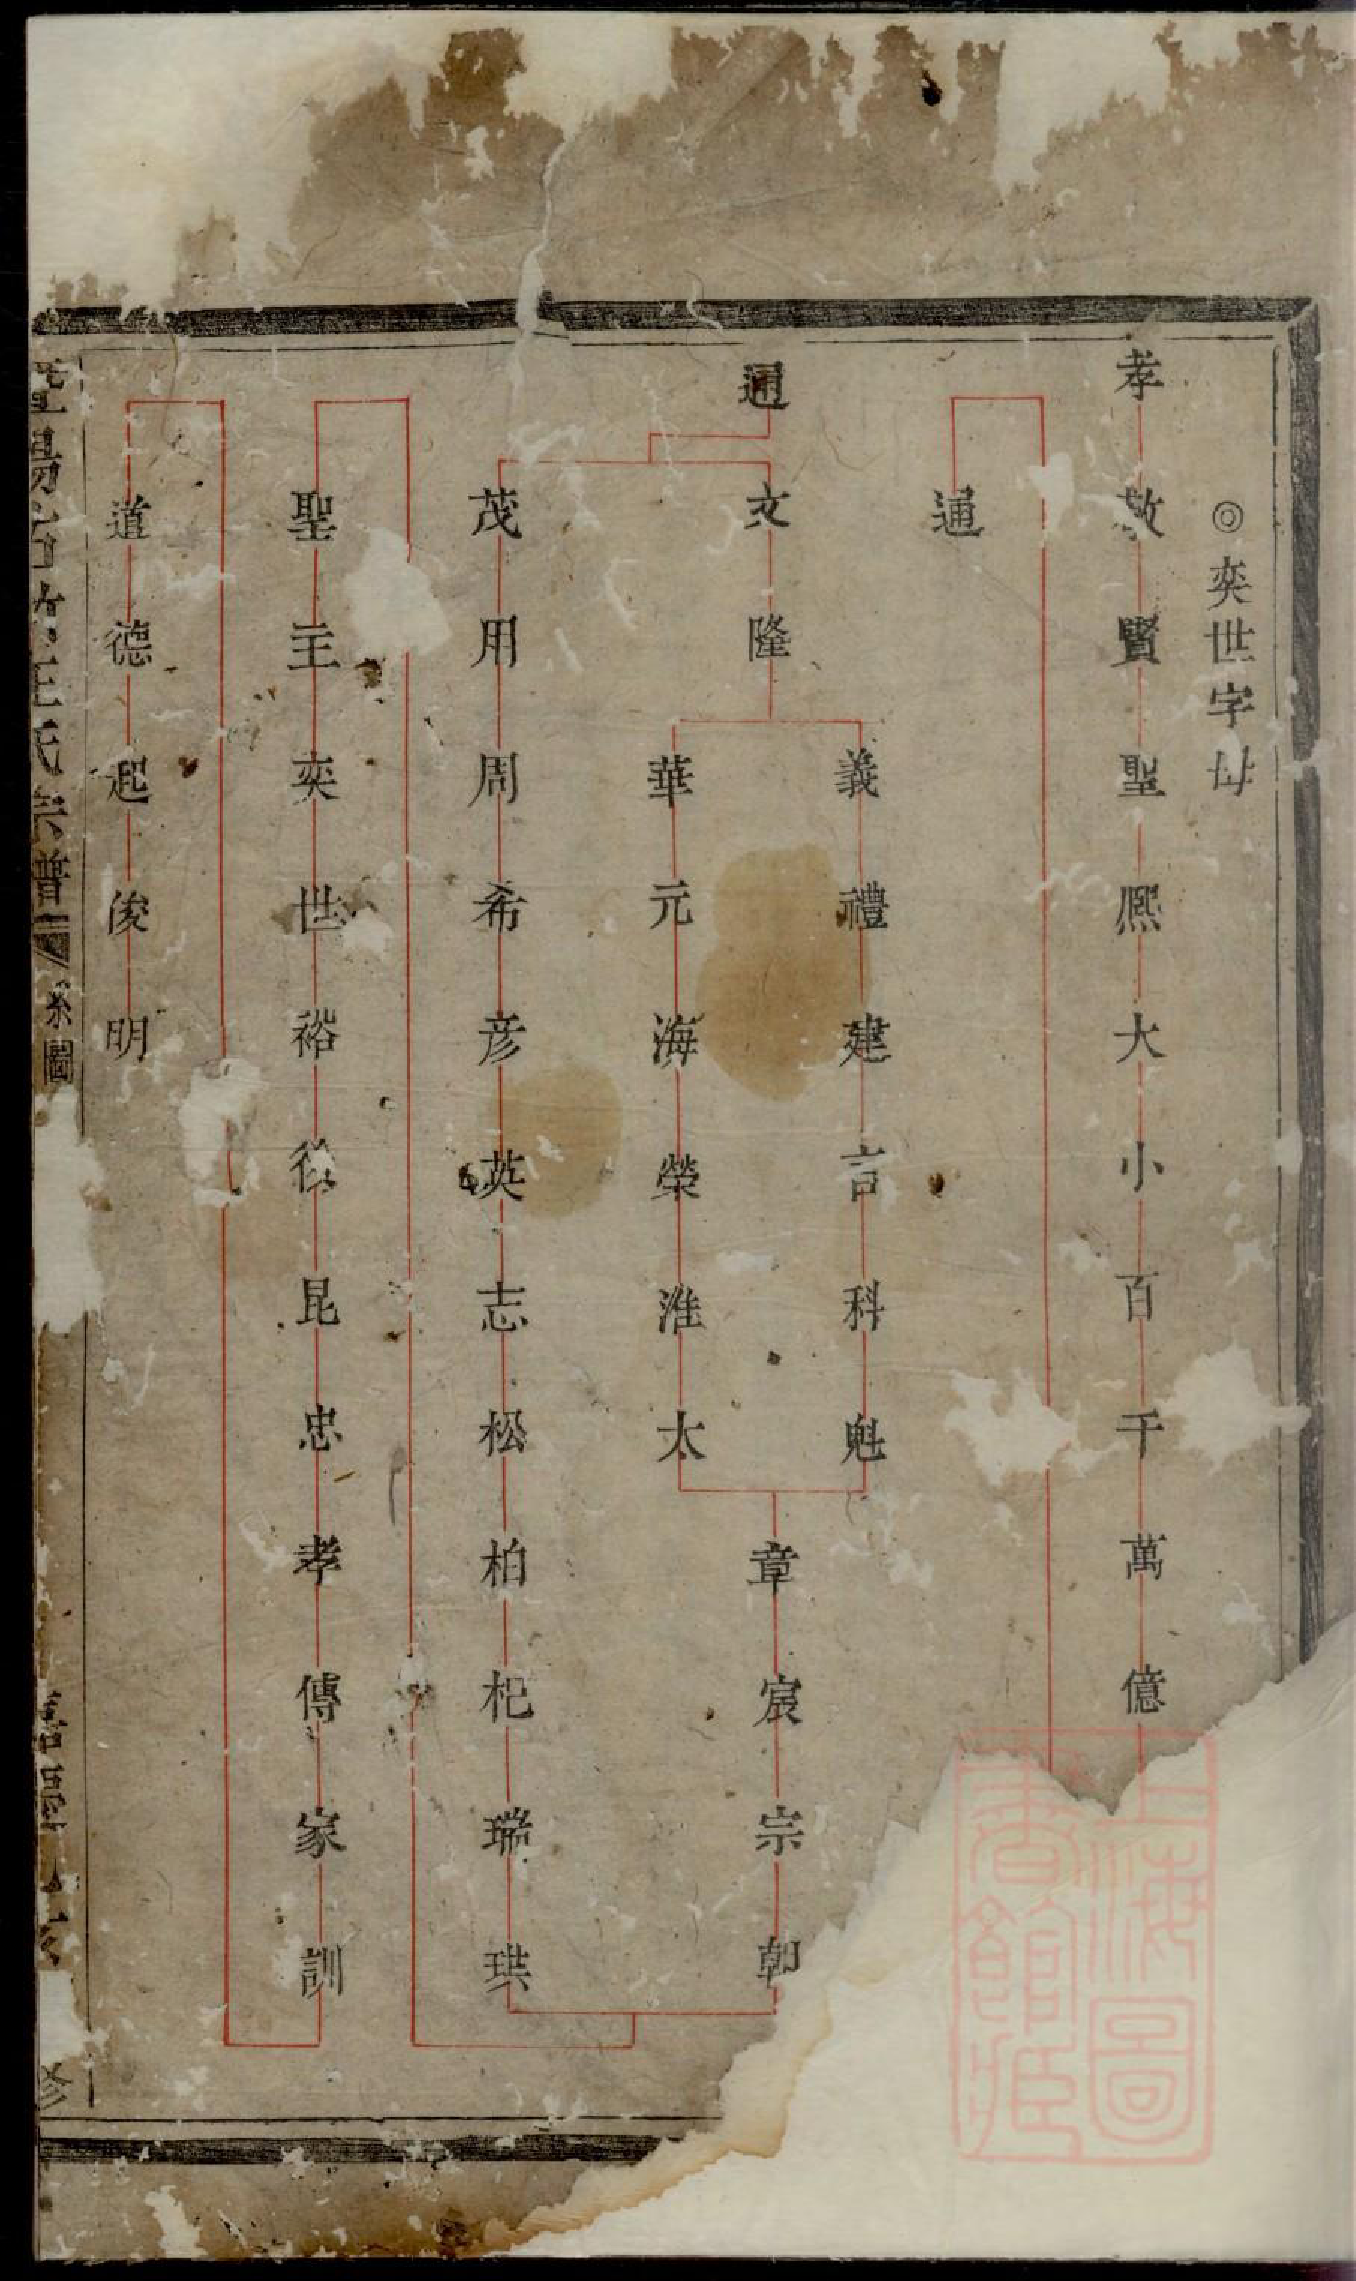 ◎奕世字母
孝敬賢聖熈大小百千萬億
通
義禮建言科魁
通文隆
章宸宗朝
華元海榮淮太
茂用周希彦英志松柏杞瑞珙
聖主奕世裕後昆忠孝傳家訓
道德起俊明
暨陽
王氏宗譜
系圖
修
上海圖書館藏